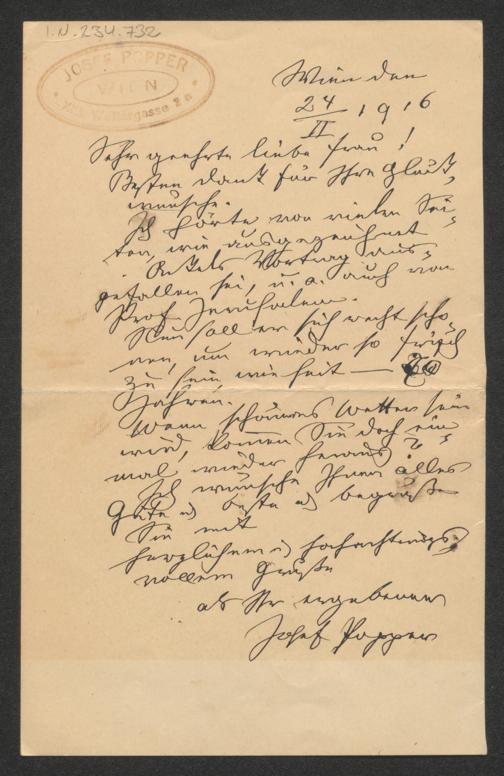 I.N. 234.732
JOSEF POPPER
WIEN
XIII. Woltergasse 2a
Wien den
24/II 1916
Sehr geehrte liebe Frau!
Besten Dank für Ihre Glück-
wünsche.
Ich hörte von vielen Sei-
ten, wie ausgezeichnet
Vortrag aus-
gefallen sei, u. a. auch von
Prof. Jerusalem.
Nun soll er sich recht scho-
nen, um wieder so frisch
zu sein wie seit —
Jahren.
Wenn schöneres Wetter sein
wird, kommen Sie doch ein-
mal wieder heraus?
Ich wünsche Ihnen alles
Gute u. Beste u. begrüße
Sie mit
herzlichem u. hochachtungs-
vollem Gruße
als Ihr ergebener
Josef Popper